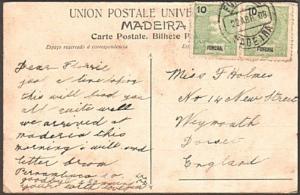 UNION POSTALE UNIVER
MADEIRA
Carte Postale. Bilhete P
Espaço reservado á correspondencia
10
FUNCHAL
10
FUNCHAL
MADEIRA
Dear Florrie
just a line hoping
this will find you
all quite well
we arrived at
madeira this
morning i will send
letter from
Pernambuco so
goodbye
Miss F Holmes
No 14 New Street
Weymouth
Dorset
England